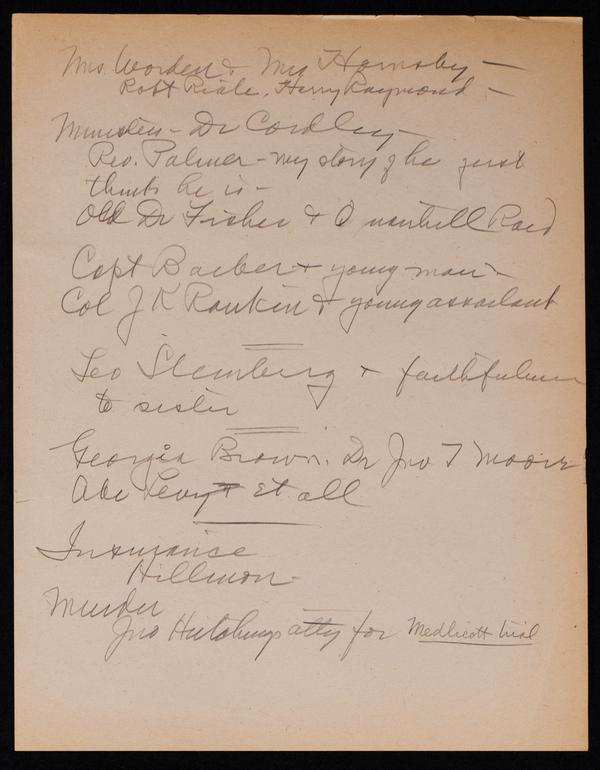 Mrs. Worden & Mrs Hornsby —
Robt Riale, Henry Raymond —
Ministers — Dr Cordley
Rev. Palmer — my story of he just
thinks he is —
Old Dr Fisher & Quantrell Raid
Capt Barber & young man —
Col J K Rankin & young assailant
Leo Sternberg & faithfulness
to sister
Georgia Brown. Dr Jno T Moore
Abe Levy et all
Insurance
Hillmon —
Murder
Jno Hutchings atty for Medlicott trial